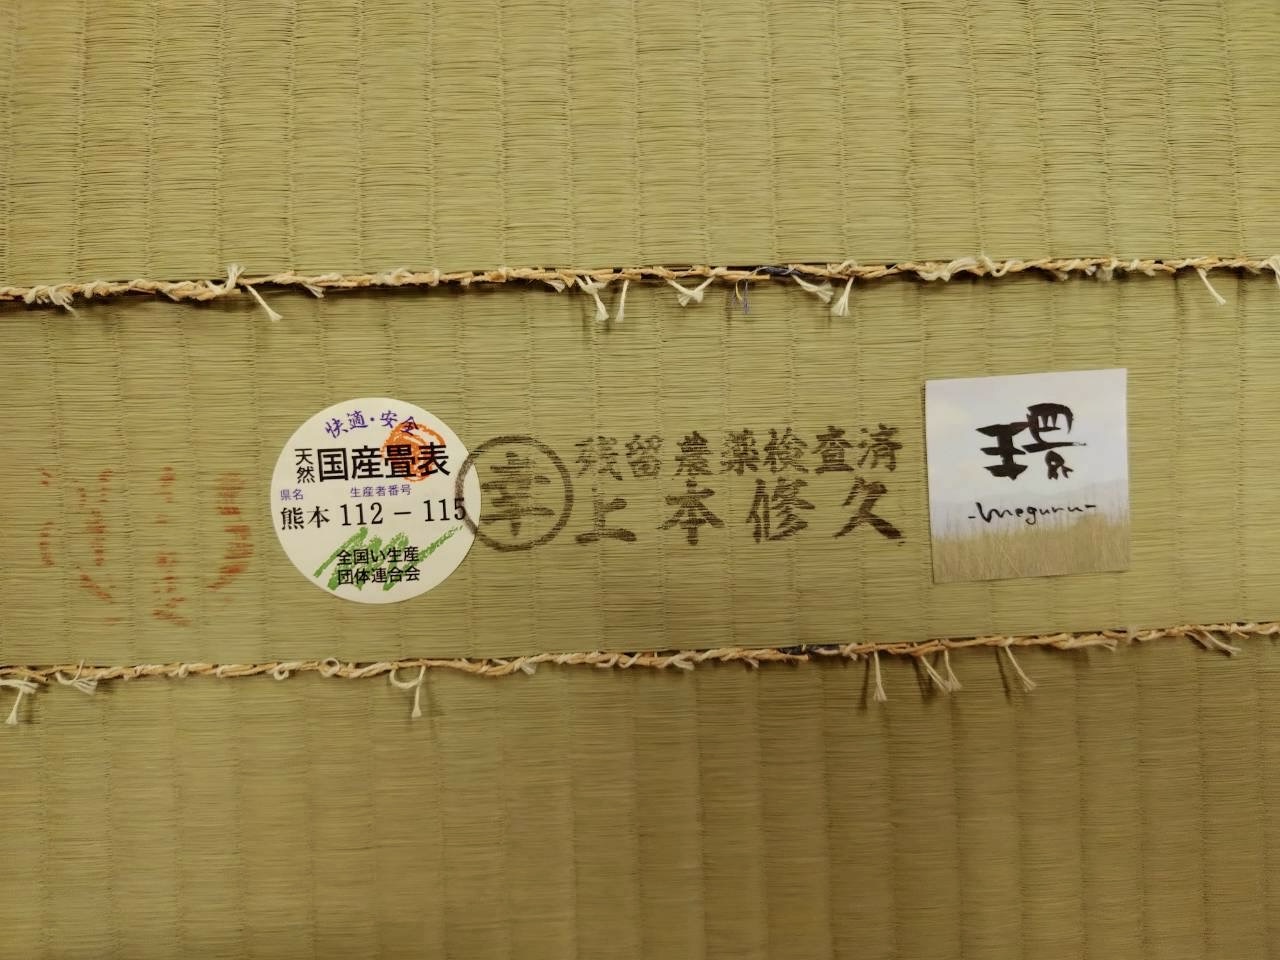 快適・安全
天然国産畳表
県名 生産者番号
熊本 112－115
全国い生産
団体連合会
幸
残留農薬検査済
上本修久
環
-meguru-